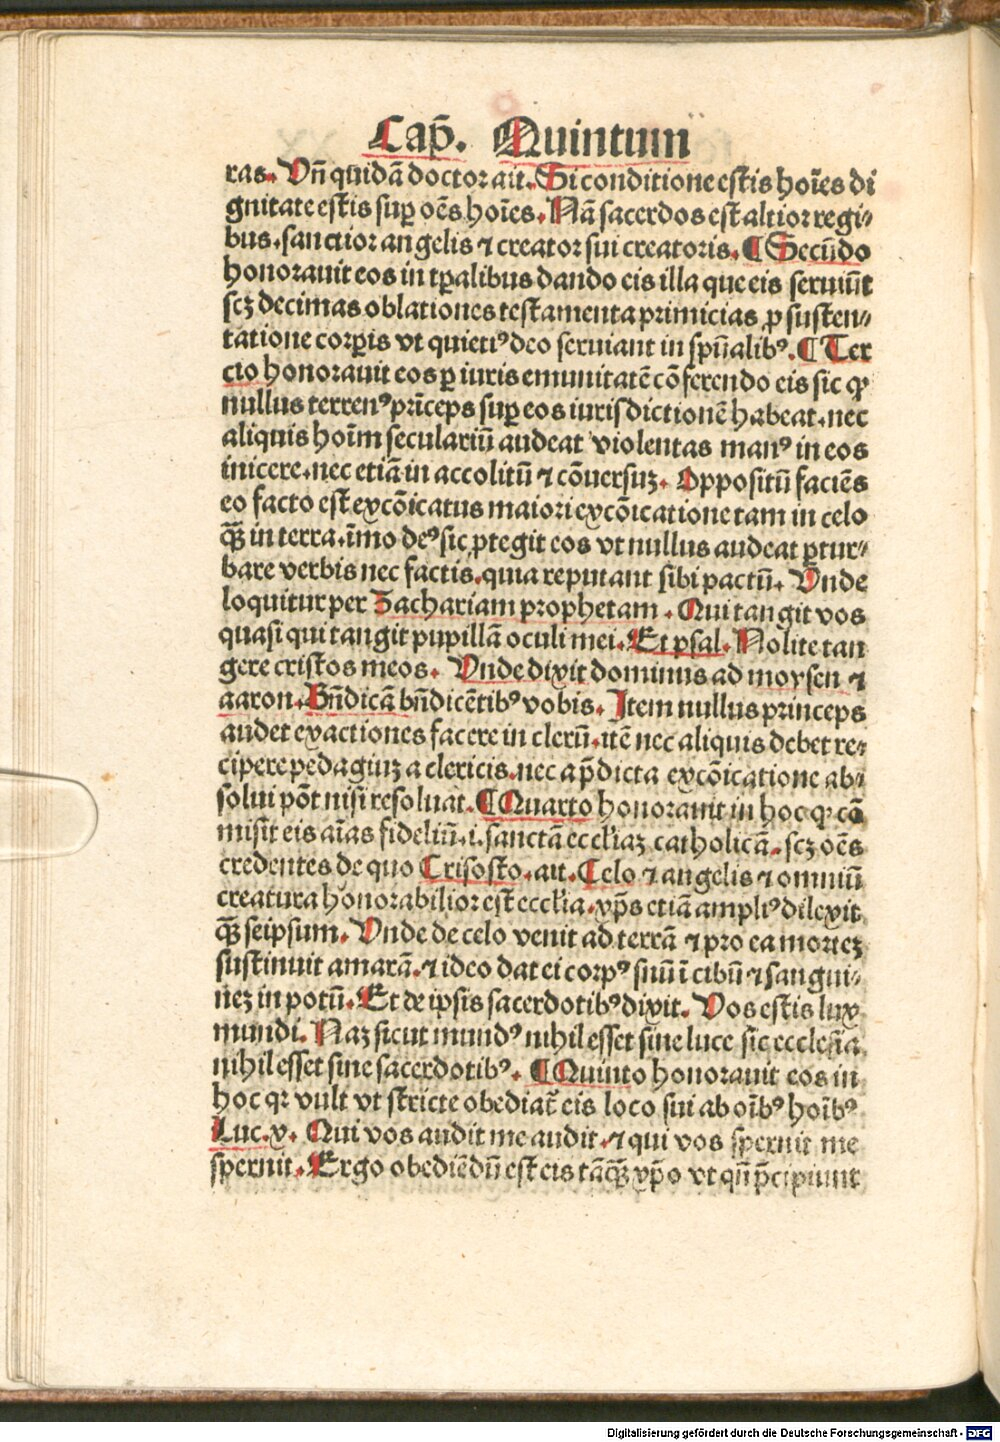 Cap̄. Quintum
ras. Vn̄ quidā doctor ait. Si conditione estis hoīes di
gnitate estis suꝑ oēs hoīes. Nā sacerdos est altior regi⸗
bus. sanctior angelis ⁊ creator sui creatoris. ¶ Secūdo
honorauit eos in tꝑalibus dando eis illa que eis seruiūt
scꝫ decimas oblationes testamenta primicias ꝓ susten⸗
tatione corꝑis vt quietiꝰ deo seruiant in spūalibꝰ. ¶ Ter
cio honorauit eos ꝑ iuris emunitatē cōferendo eis sic ꝙ
nullus terrenꝰ prīceps suꝑ eos iurisdictionē habeat. nec
aliquis hoīm seculariū audeat violentas manꝰ in eos
inicere. nec etiā in accolitū ⁊ cōuersuꝫ. Oppositū faciēs
eo facto est excōicatus maiori excōicatione tam in celo
ꝙ̄ in terra. īmo deꝰ sic ꝓtegit eos vt nullus audeat ꝑtur⸗
bare verbis nec factis. quia reputant sibi pactū. Vnde
loquitur per Zachariam prophetam. Qui tangit vos
quasi qui tangit pupillā oculi mei. Et psal. Nolite tan
gere cristos meos. Vnde dixit dominus ad moysen ⁊
aaron. Bn̄dicā bn̄dicētibꝰ vobis. Item nullus princeps
audet exactiones facere in clerū. itē nec aliquis debet re⸗
cipere pedagiuꝫ a clericis. nec a p̄dicta excōicatione ab⸗
solui pōt nisi resoluat. ¶ Quarto honorauit in hoc qꝛ cō
misit eis aīas fideliū. i. sanctā eccl'iaꝫ catholicā. scꝫ oēs
credentes de quo Crisosto. ait. Celo ⁊ angelis ⁊ omniū
creatura honorabilior est eccl'ia. xp̄s etiā ampliꝰ dilexit
ꝙ̄ seipsum. Vnde de celo venit ad terrā ⁊ pro ea morteꝫ
sustinuit amarā. ⁊ ideo dat ei corpꝰ suū ī cibū ⁊ sangui⸗
neꝫ in potū. Et de ipsis sacerdotibꝰ dixit. Vos estis lux
mundi. Naꝫ sicut mundꝰ nihil esset sine luce sic ecclesia
nihil esset sine sacerdotibꝰ. ¶ Quinto honorauit eos in
hoc qꝛ vult vt stricte obediat̄ eis loco sui ab oībꝰ hoībꝰ
Luc. x. Qui vos audit me audit. ⁊ qui vos spernit me
spernit. Ergo obediēdū est eis tāꝙ̄ xp̄o vt qn̄ p̄cipiunt
Digitalisierung gefördert durch die Deutsche Forschungsgemeinschaft - DFG